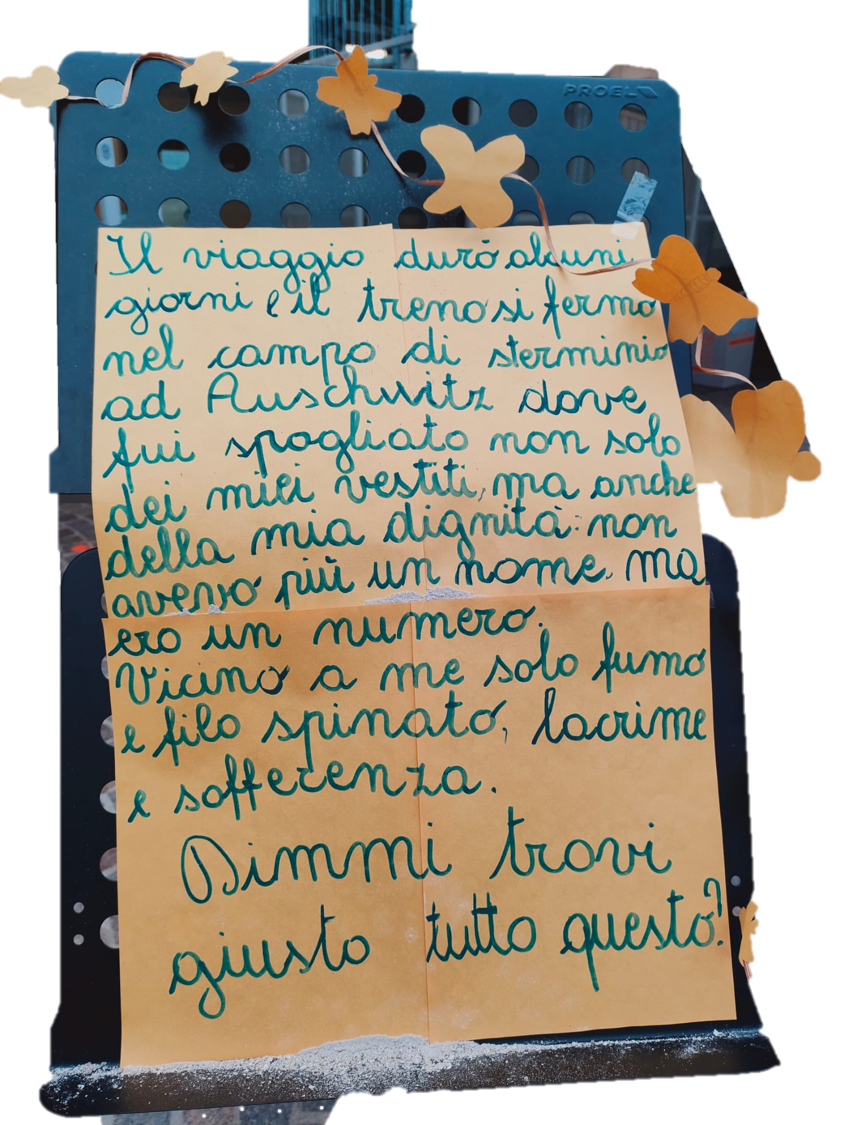 PROEL
Il viaggio durò alcuni
giorni e il treno si fermò
nel campo di sterminio
ad Auschwitz dove
fui spogliato non solo
dei miei vestiti, ma anche
della mia dignità: non
avevo più un nome, ma
ero un numero.
Vicino a me solo fumo
e filo spinato, lacrime
e sofferenza.
Dimmi trovi
giusto tutto questo?